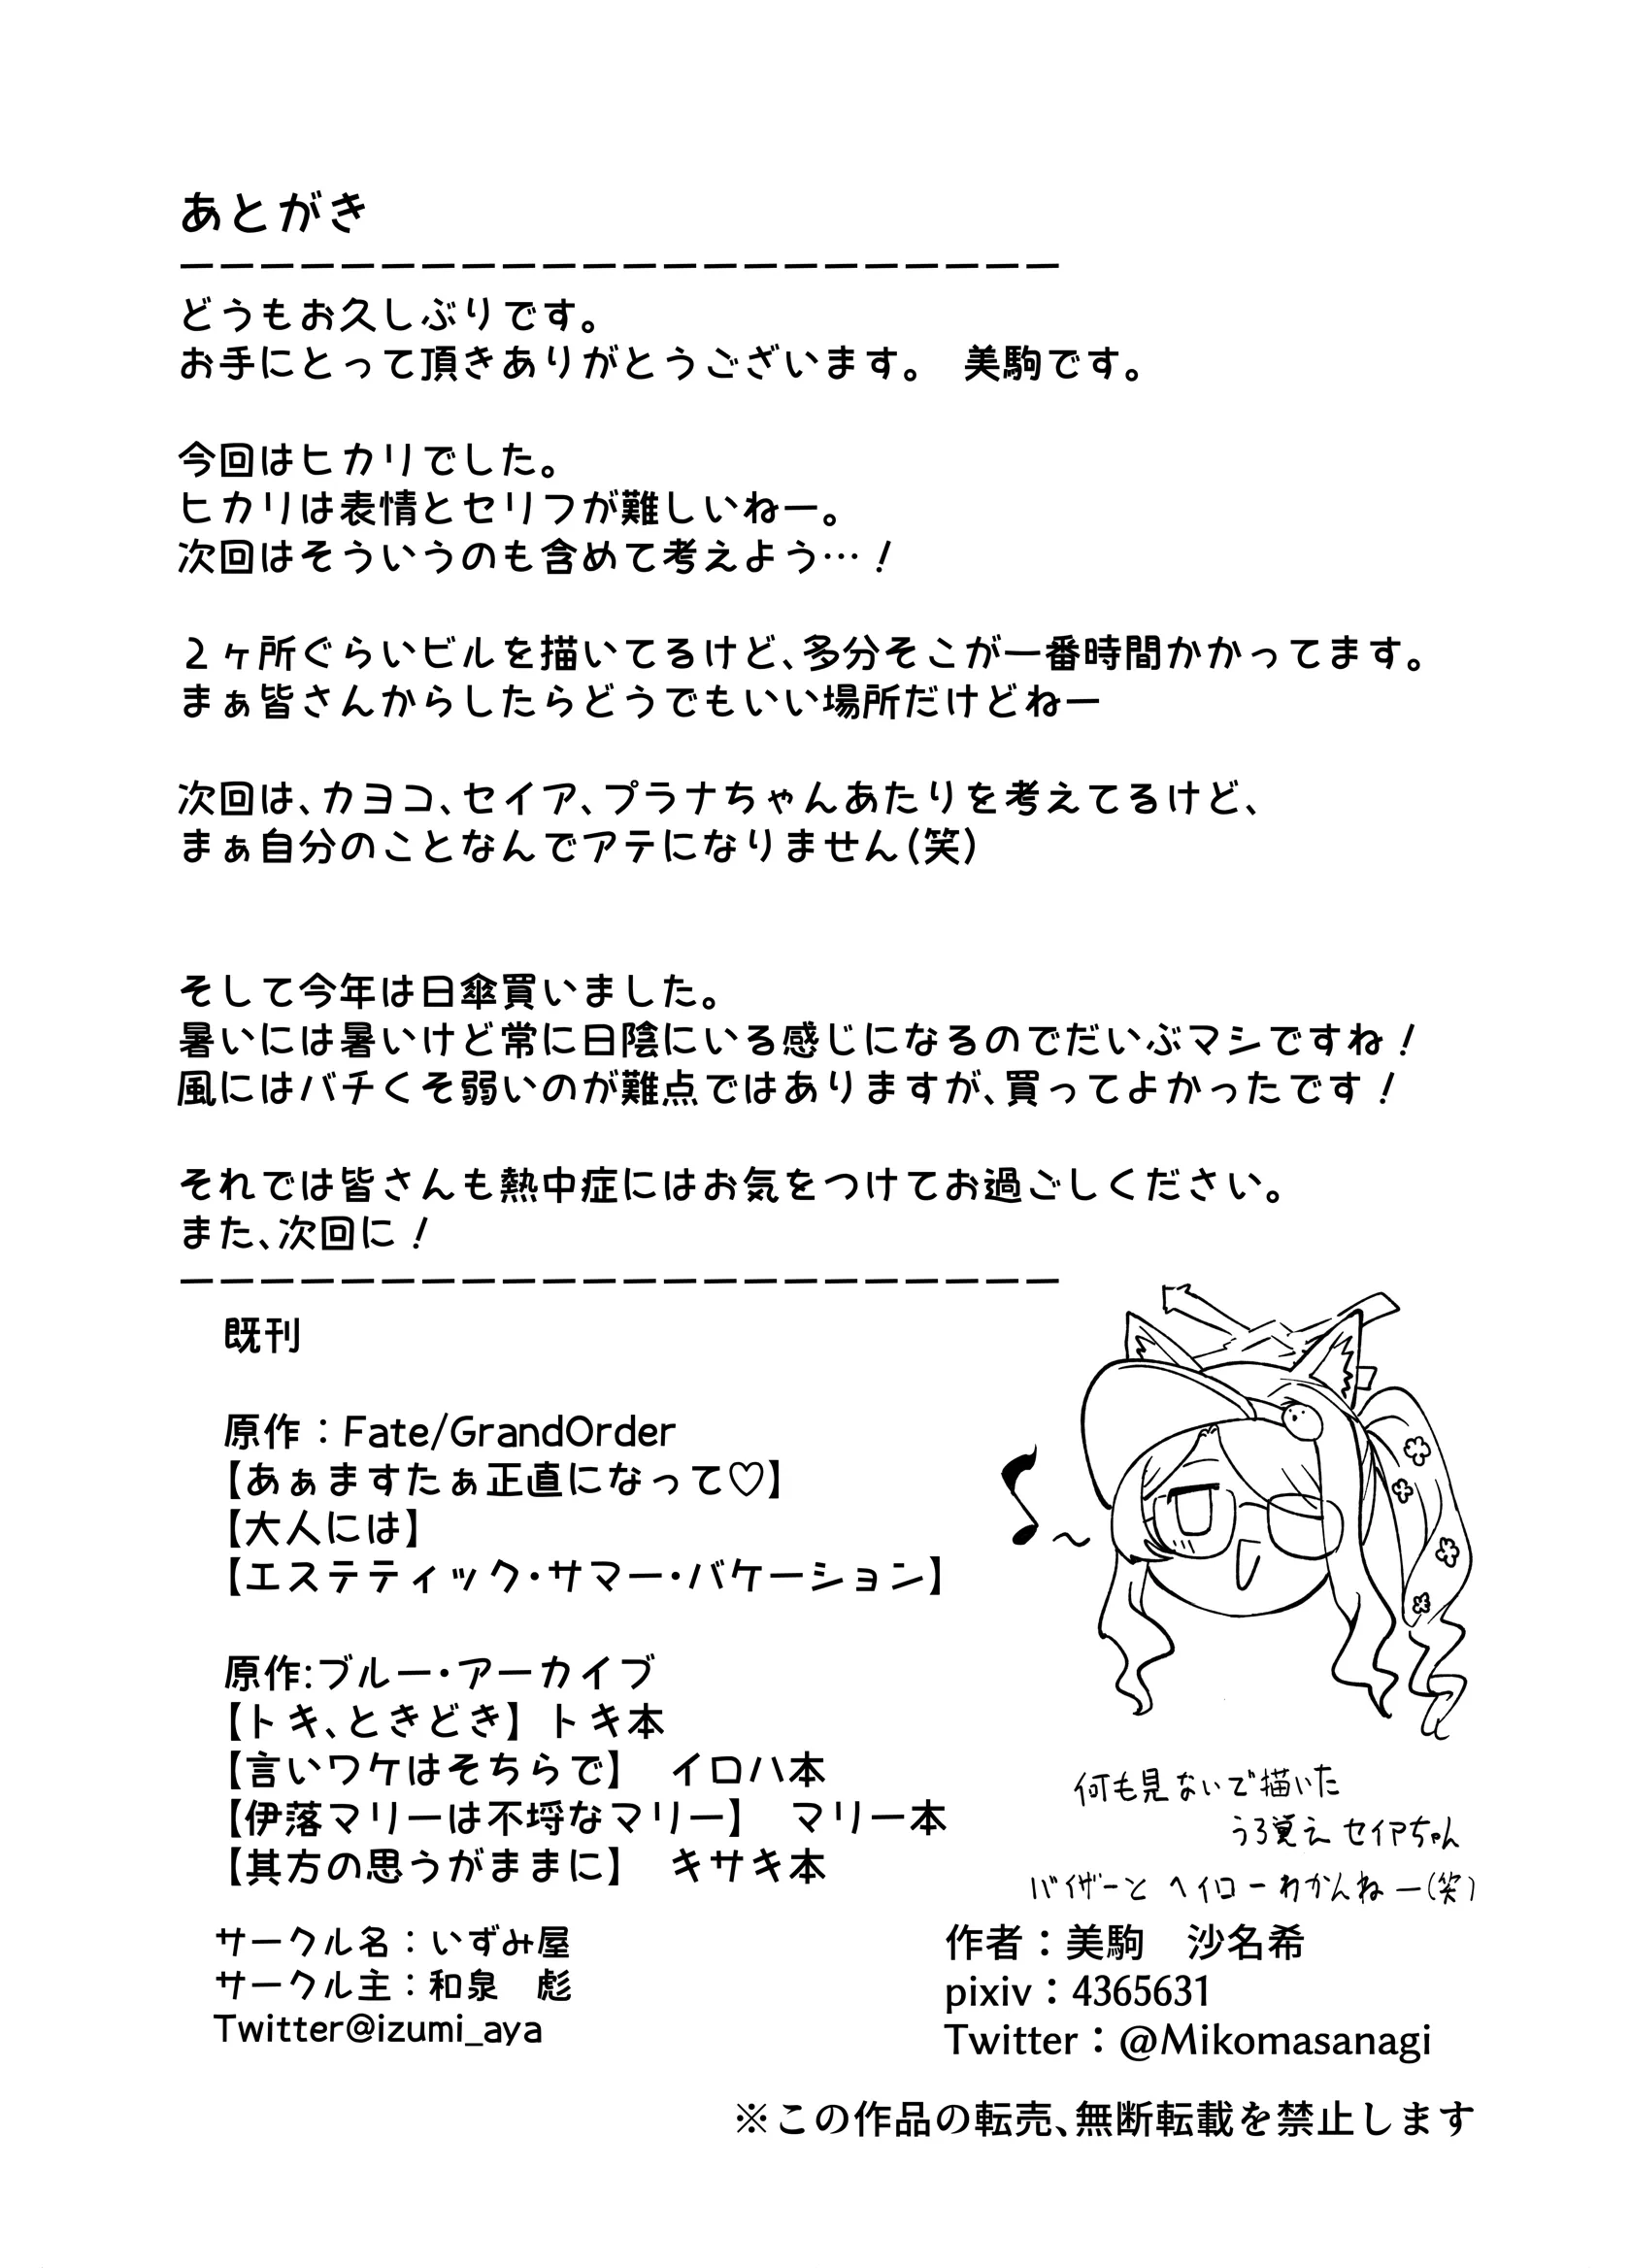 あとがき
ーーーーーーーーーーーーーーーーーーーーーー
どうもお久しぶりです。
お手にとって頂きありがとうございます。　美駒です。
今回はヒカリでした。
ヒカリは表情とセリフが難しいねー。
次回はそういうのも含めて考えよう…！
２ヶ所ぐらいビルを描いてるけど、多分そこが一番時間かかってます。
まぁ皆さんからしたらどうでもいい場所だけどねー
次回は、カヨコ、セイア、プラナちゃんあたりを考えてるけど、
まぁ自分のことなんでアテになりません（笑）
そして今年は日傘買いました。
暑いには暑いけど常に日陰にいる感じになるのでだいぶマシですね！
風にはバチくそ弱いのが難点ではありますが、買ってよかったです！
それでは皆さんも熱中症にはお気をつけてお過ごしください。
また、次回に！
ーーーーーーーーーーーーーーーーーーーーーー
既刊
原作：Fate/GrandOrder
【あぁますたぁ正直になって♡】
【大人には】
【エステティック・サマー・バケーション】
原作:ブルー・アーカイブ
【トキ、ときどき】トキ本
【言いワケはそちらで】　イロハ本
【伊落マリーは不埒なマリー】　マリー本
【其方の思うがままに】　キサキ本
何も見ないで描いた
うろ覚え セイアちゃん
バイザーと ヘイローわかんねー(笑)
サークル名：いずみ屋
サークル主：和泉　彪
Twitter@izumi_aya
作者：美駒　沙名希
pixiv：4365631
Twitter：@Mikomasanagi
※この作品の転売、無断転載を禁止します